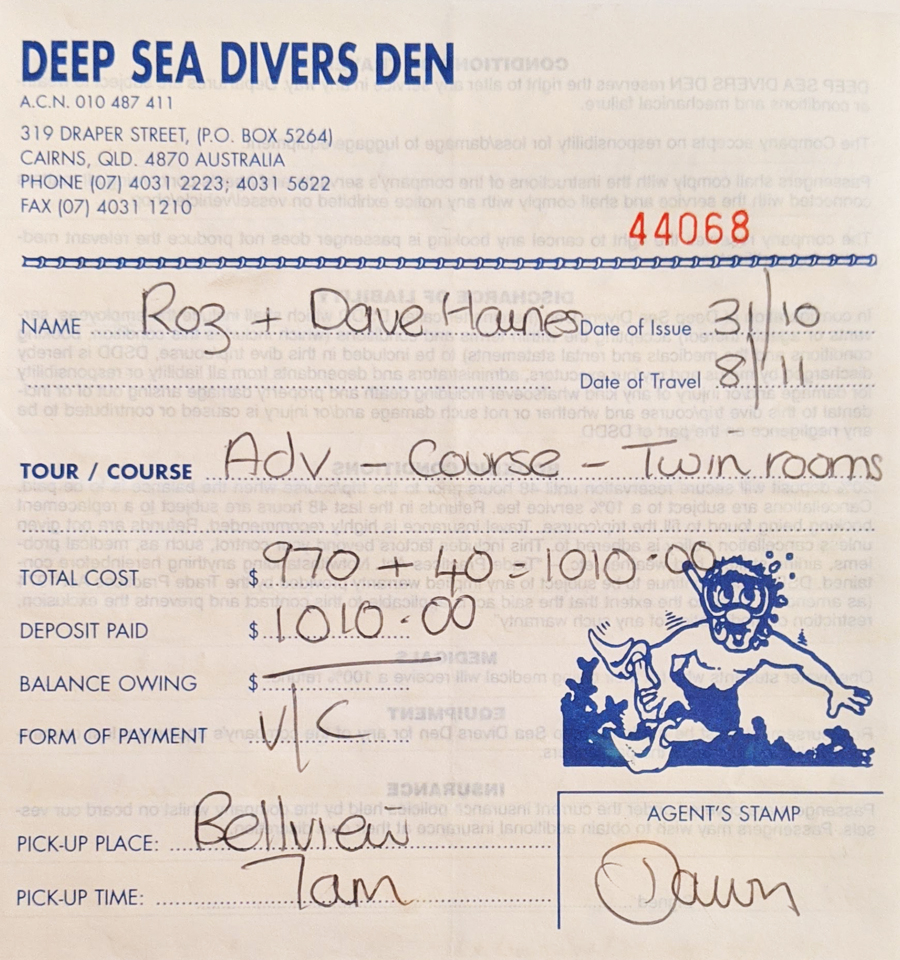 DEEP SEA DIVERS DEN
A.C.N. 010 487 411
319 DRAPER STREET, (P.O. BOX 5264)
CAIRNS, QLD. 4870 AUSTRALIA
PHONE (07) 4031 2223; 4031 5622
FAX (07) 4031 1210
44068
NAME Roz + Dave Haines Date of Issue 31/10
Date of Travel 8/11
TOUR / COURSE Adv Course - Twin rooms
TOTAL COST $ 970 + 40 = 1010.00
DEPOSIT PAID $ 1010.00
BALANCE OWING $ —
FORM OF PAYMENT V/C
PICK-UP PLACE: Bellview
PICK-UP TIME: 7am
AGENT'S STAMP
Dawn